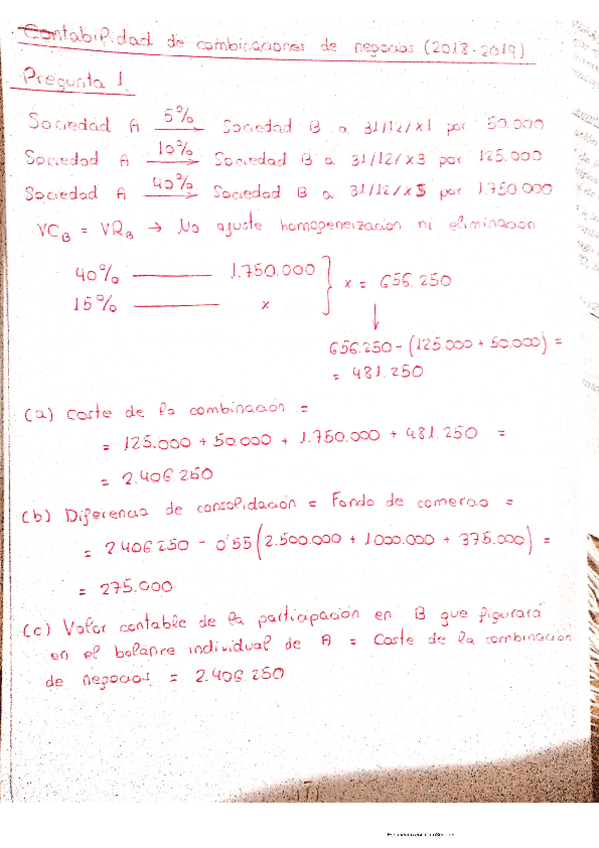 Contabilidad de combinaciones de negocios (2018-2019)
Pregunta 1.
Sociedad A 5% → Sociedad B a 31/12/x1 por 50.000
Sociedad A 10% → Sociedad B a 31/12/x3 por 125.000
Sociedad A 40% → Sociedad B a 31/12/x5 por 1.750.000
VC_B = VR_B → No ajuste homogeneización ni eliminación
40% ——— 1.750.000
15% ——— x
} x = 656.250
↓
656.250 - (125.000 + 50.000) =
= 481.250
(a) Coste de la combinación =
= 125.000 + 50.000 + 1.750.000 + 481.250 =
= 2.406.250
(b) Diferencia de consolidación = Fondo de comercio =
= 2.406.250 - 0'55 (2.500.000 + 1.000.000 + 375.000) =
= 275.000
(c) Valor contable de la participación en B que figurará
en el balance individual de A = Coste de la combinación
de negocios = 2.406.250